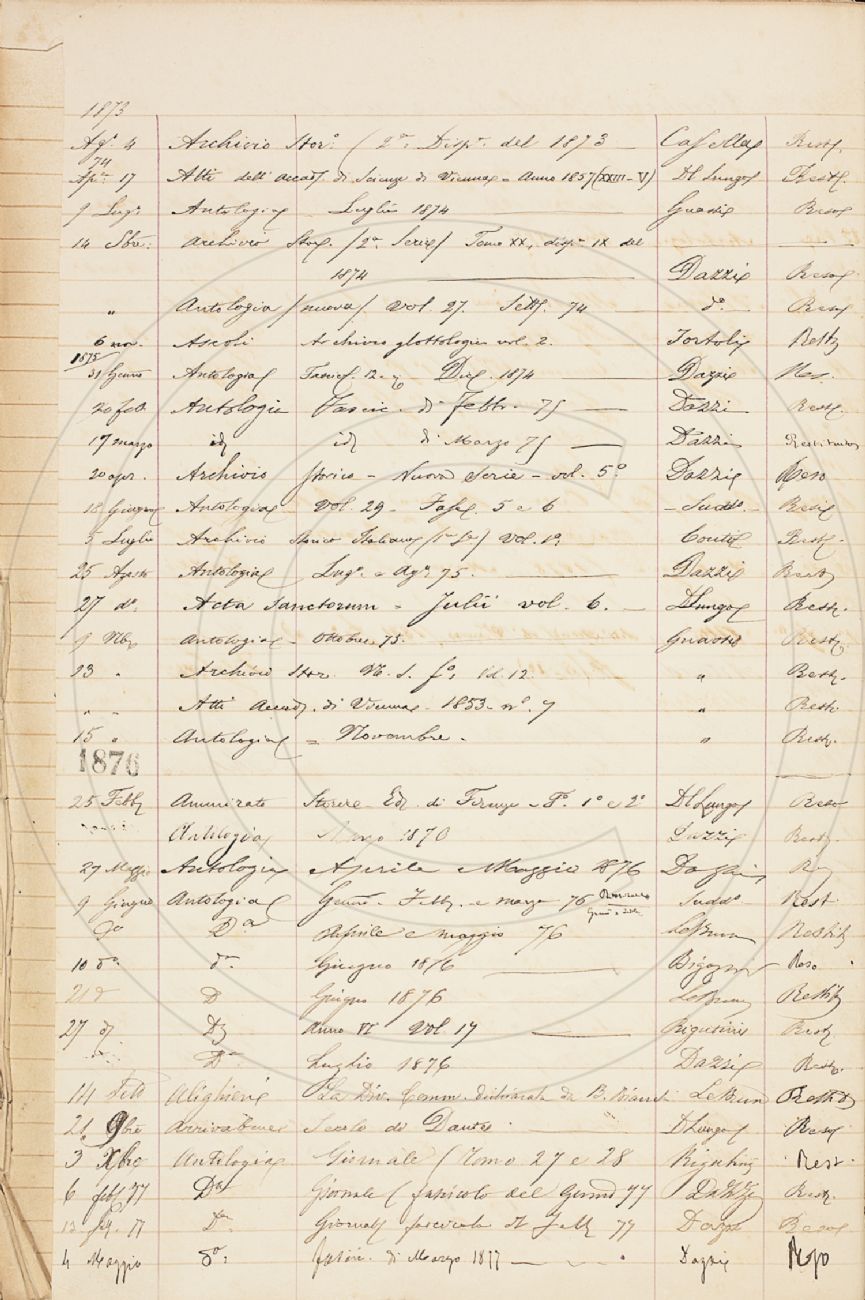 1873
Agº 4 Archivio Storº (2ª Dispª del 1873 — Casella Rest.
74
Apr. 17 Atti dell'accad. di Scienze di Vienna - Anno 1857 (XXIII-V) Dl Lungo Rest.
9 Lugº Antologia Luglio 1874 Guasti Reso
14 Sbre: Archivio Stor. (2ª Serie) Tomo XX, dispª IX del
1874 — Dazzi Reso
" Antologia (nuova) Vol. 27. Sett. 74 — dº Reso
6 nov. Ascoli Archivio glottologico vol. 2. Tortoli Restº
1875
31 Genno Antologia Fascic. 12. Dic. 1874 — Dazzi Res.
20 feb. Antologia Fascic. di Febbr. 75 — Dazzi Rest.
17 marzo id id di Marzo 75 — Dazzi Restituito
20 apr. Archivio storico - Nuova Serie - vol. 5º Dazzi Reso
18 Giugno Antologia Vol. 29 - Fasc. 5 e 6 - Suddº - Reso
5 Luglio Archivio Storico Italiano (1ª Se) Vol. 1º. Conti Rest.
25 Agosto Antologia Lugº e Agº 75. — Dazzi Rest
27 dº. Acta Sanctorum - Julii vol. 6. — Dl Lungo Rest.
9 Nbre Antologia - Ottobre 75. Guasti Rest.
23 " Archivio Stor. N. S. fº, id. 12. " Rest.
" " Atti Accad. di Vienna - 1853 - nº. 7 " Rest.
15 " Antologia = Novembre - " Rest.
1876
25 Febb Ammirato Storie - Ed. di Firenze - Tº. 1º e 2º Dl Lungo Reso
Antologia Marzo 1870 Dazzi Rest.
29 Maggio Antologia Aprile e Maggio 1876 Dazzi
9 Giugno Antologia Genno - Febb. e marzo 76 Suddº Rest
Dº Dª Aprile e maggio 76 LeBrun Restit
10 dº dª Giugno 1876 — Bigazzi Reso
21 d D Giugno 1876 LeBrun Restit
27 d Dª Anno VI Vol. 17 — Rigutini Rest
Dª Luglio 1876 Dazzi Rest.
14 Alighieri La Div. Comm. dichiarata da B. Bianchi LeBrun Restit
21 9bre Arrivabene Secolo di Dante Dl Lungo Reso
3 Xbre Antologia Giornale (Tomo 27 e 28 Rigutini Rest
6 feb. 77 Dª Giornale (fascicolo del Genno 77 Dazzi Rest.
13 feb. 77 Dª Giornale fascicolo di Febb 77 Dazzi Reso
4 Maggio dª: fascic. di Marzo 1877 — Dazzi Reso